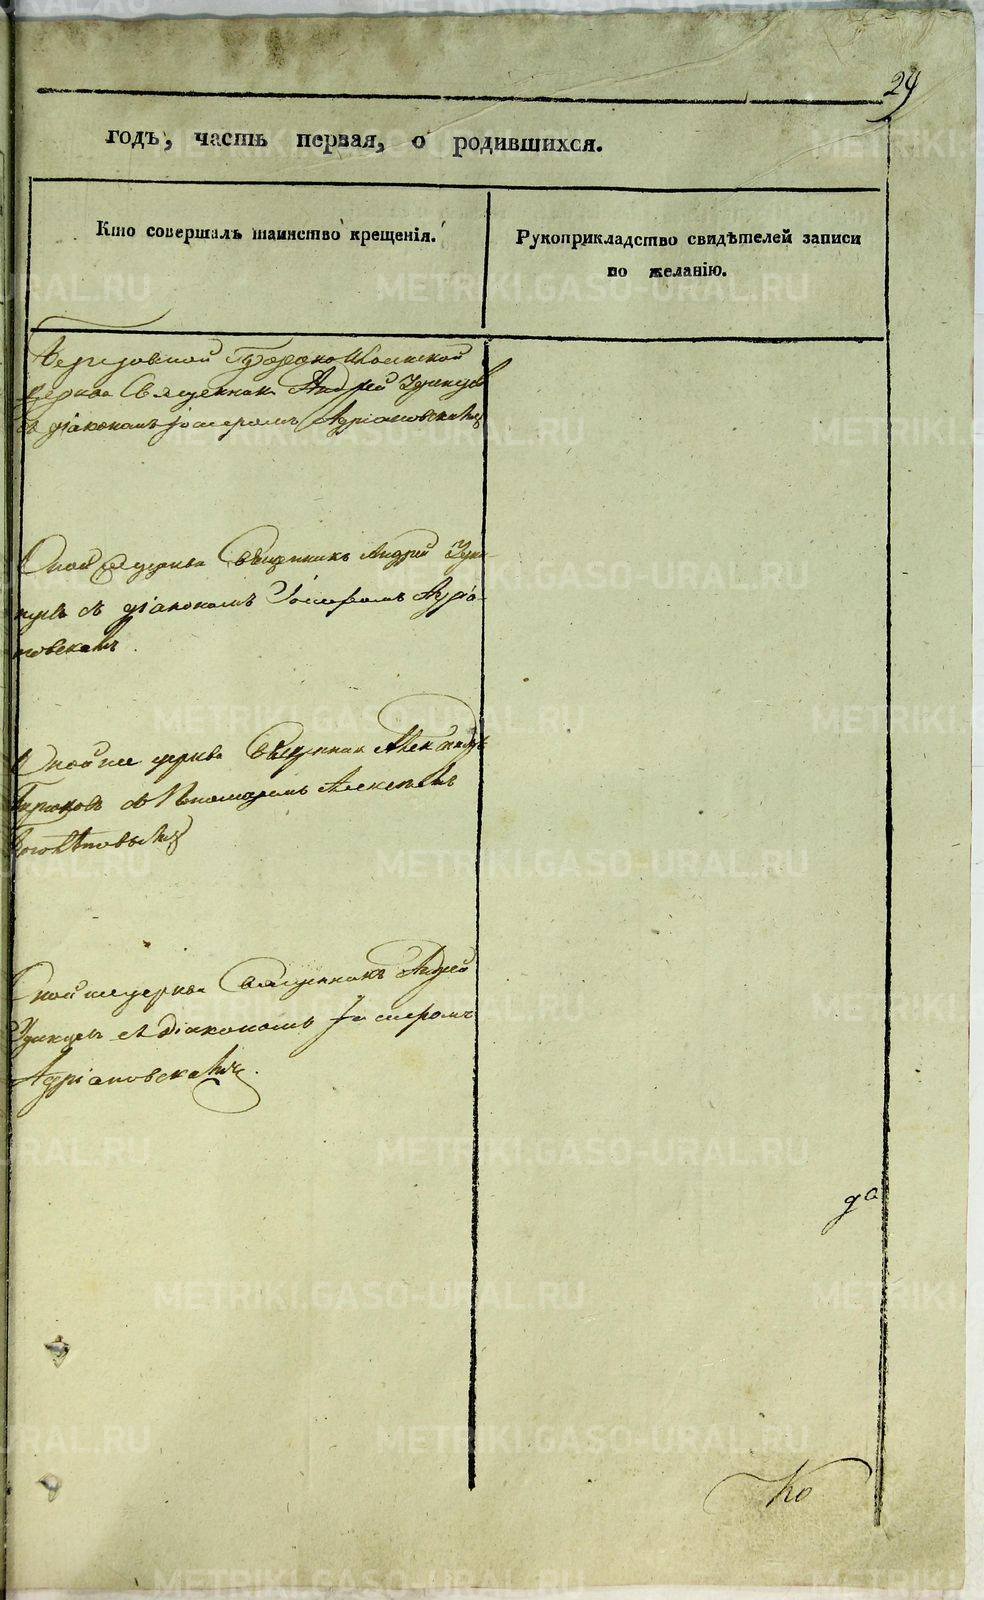 29
годъ, часть первая, о родившихся.
Кто совершалъ таинство крещенія.
Рукоприкладство свидѣтелей записи
по желанію.
церкви Священникъ Андрей
съ діакономъ Іосифомъ Адріановскимъ
Оной же церкви Священникъ Андрей
съ діакономъ Іосифомъ Адріа-
новскимъ.
Оной же церкви Священникъ Александръ
съ Пономаремъ Алексѣемъ
Оной же церкви Священникъ Андрей
съ Діакономъ Іосифомъ
Адріановскимъ.
да
Ко
METRIKI.GASO-URAL.RU